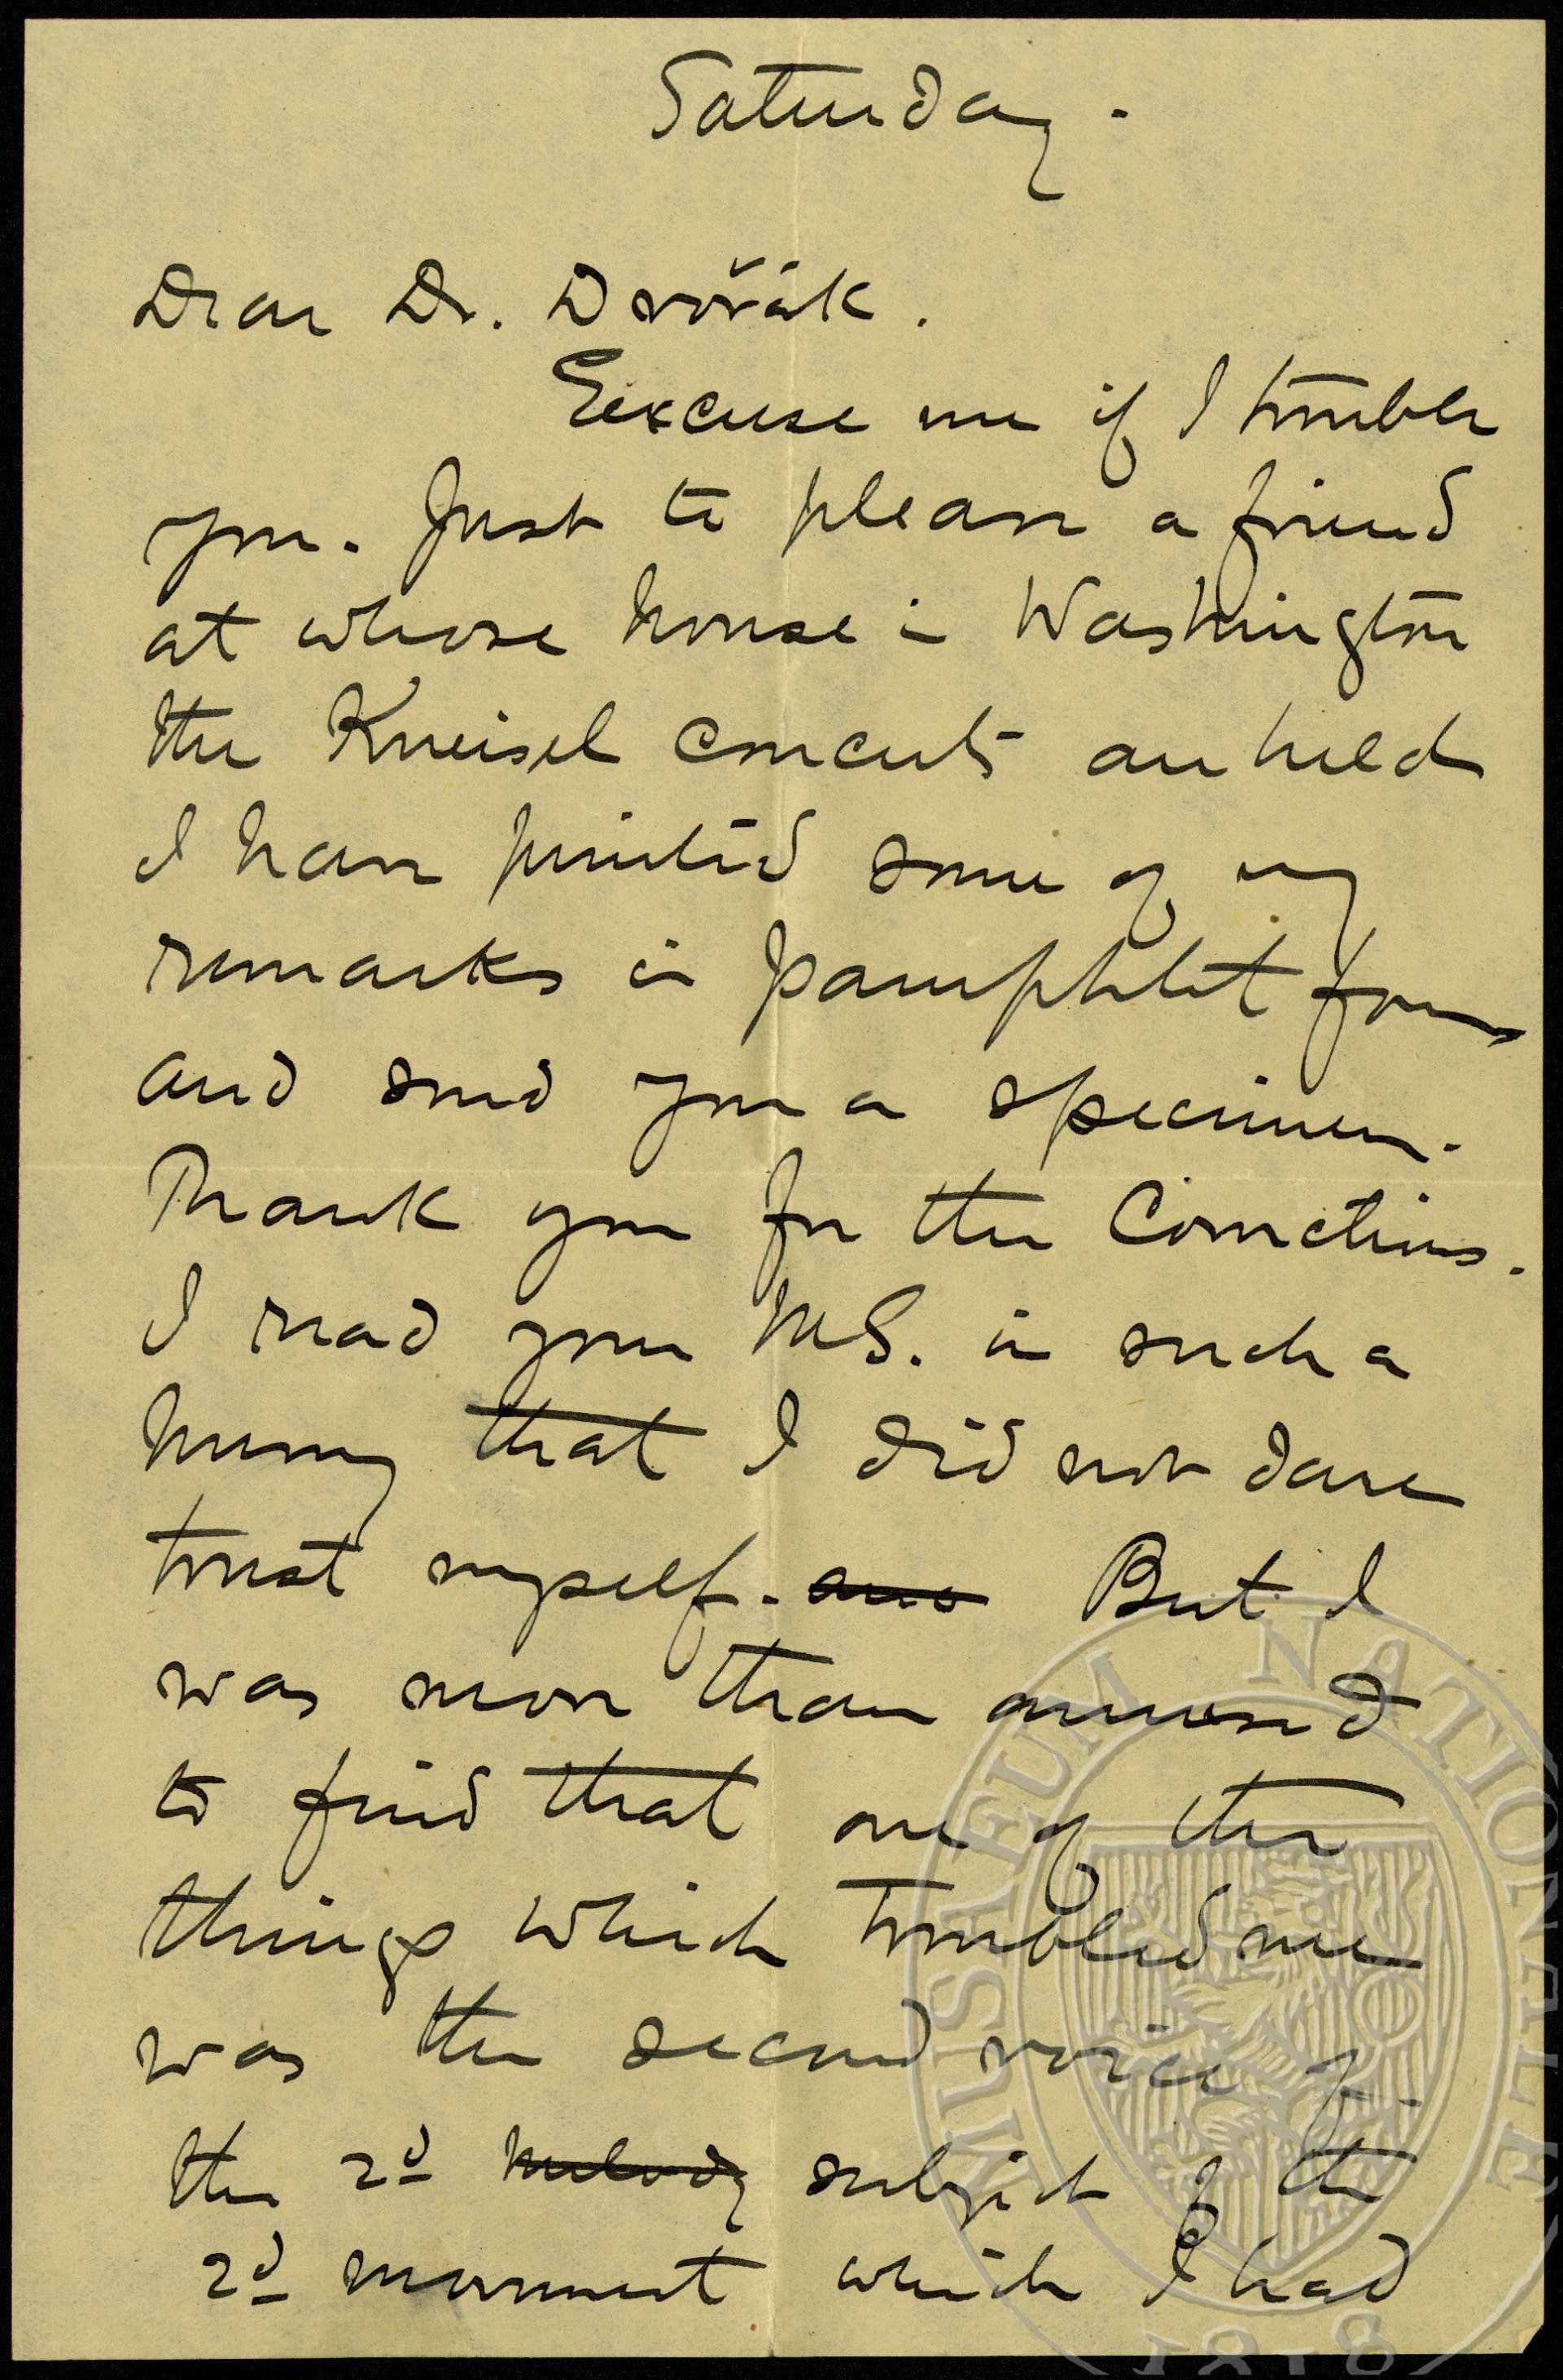 Saturday.
Dear Dr. Dvořák.
Excuse me if I trouble
you. Just to please a friend
at whose house in Washington
the Kneisel concerts are held
I have printed some of my
remarks in pamphlet form
and send you a specimen.
Thank you for the Corrections.
I read your MS. in such a
hurry that I did not dare
trust myself. and But I
was more than amused
to find that one of the
things which troubled me
was the second voice of
the 2d melody subject of the
2d movement which I had
MUSAEUM NATIONALE
1818